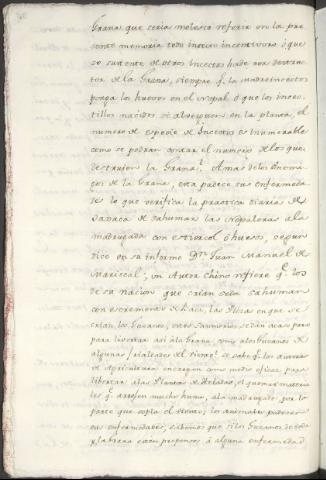 Grana que seria molesto referir en la pre
sente memoria todo insecto
se sustente de otros Insectos hade ser destruc
tor de la Grana, siempre q.e la madre insecto
ponga los huevos en el nopal ó que los insec
tillos nacidos se abriguen en la planta, el
numero de especie de Insectos es innumerable
como se podrán contar el numero de los que
destruien la Grana? Amas de los Enemi
gos de la Grana, esta padece sus enfermeda
des lo que verifica la practica diaria de
Oaxaca de sahumar las nopaleras a la
madrugada con estiercol ó huesos, segun
dice en su informe Dn. Juan Manuel de
Mariscal; un Autor chino refiere q.e los
de su nacion que crian seda sahuman
con escremento de Baca, las Piesas en que se
crian los Gusanos, estos sahumerios se dan acaso
para livertar asi á la Grana, como a los Gusanos de
algunas frialdades del tiempo? se sabe q.e los autores
de Agricultura encargan como medio eficaz para
libertar a las Plantas de Heladas, el quemar materia
les q.e arrojen mucho humo, a la madrugada por la
parte que sopla el viento; los animales padecen
sus enfermedades, sabemos que si los Gusanos de seda
y la Grana están propensos á alguna enfermedad